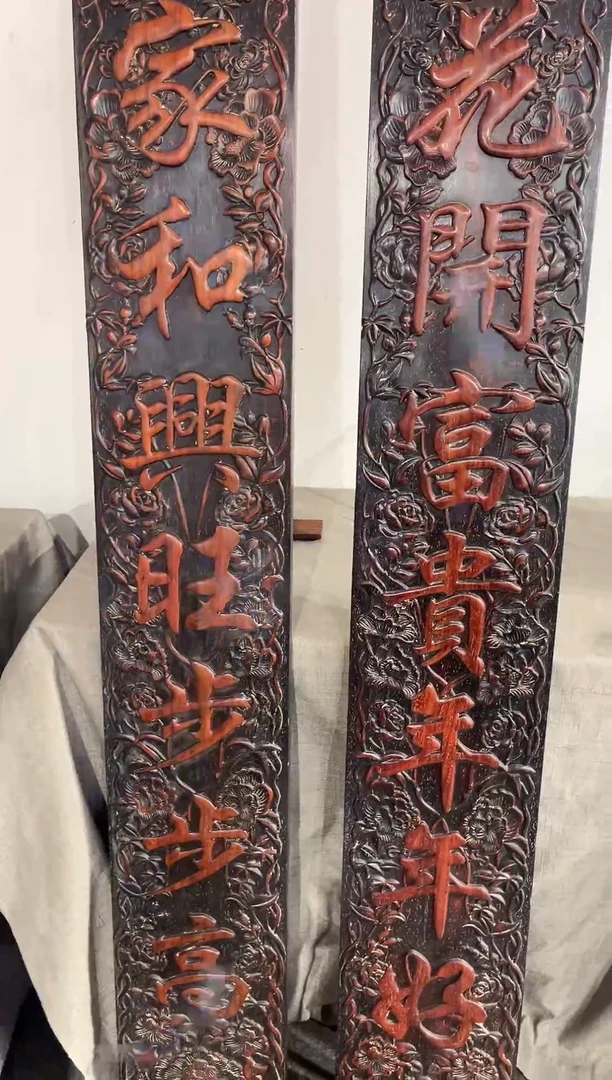 花開富貴年年好
家和興旺步步高